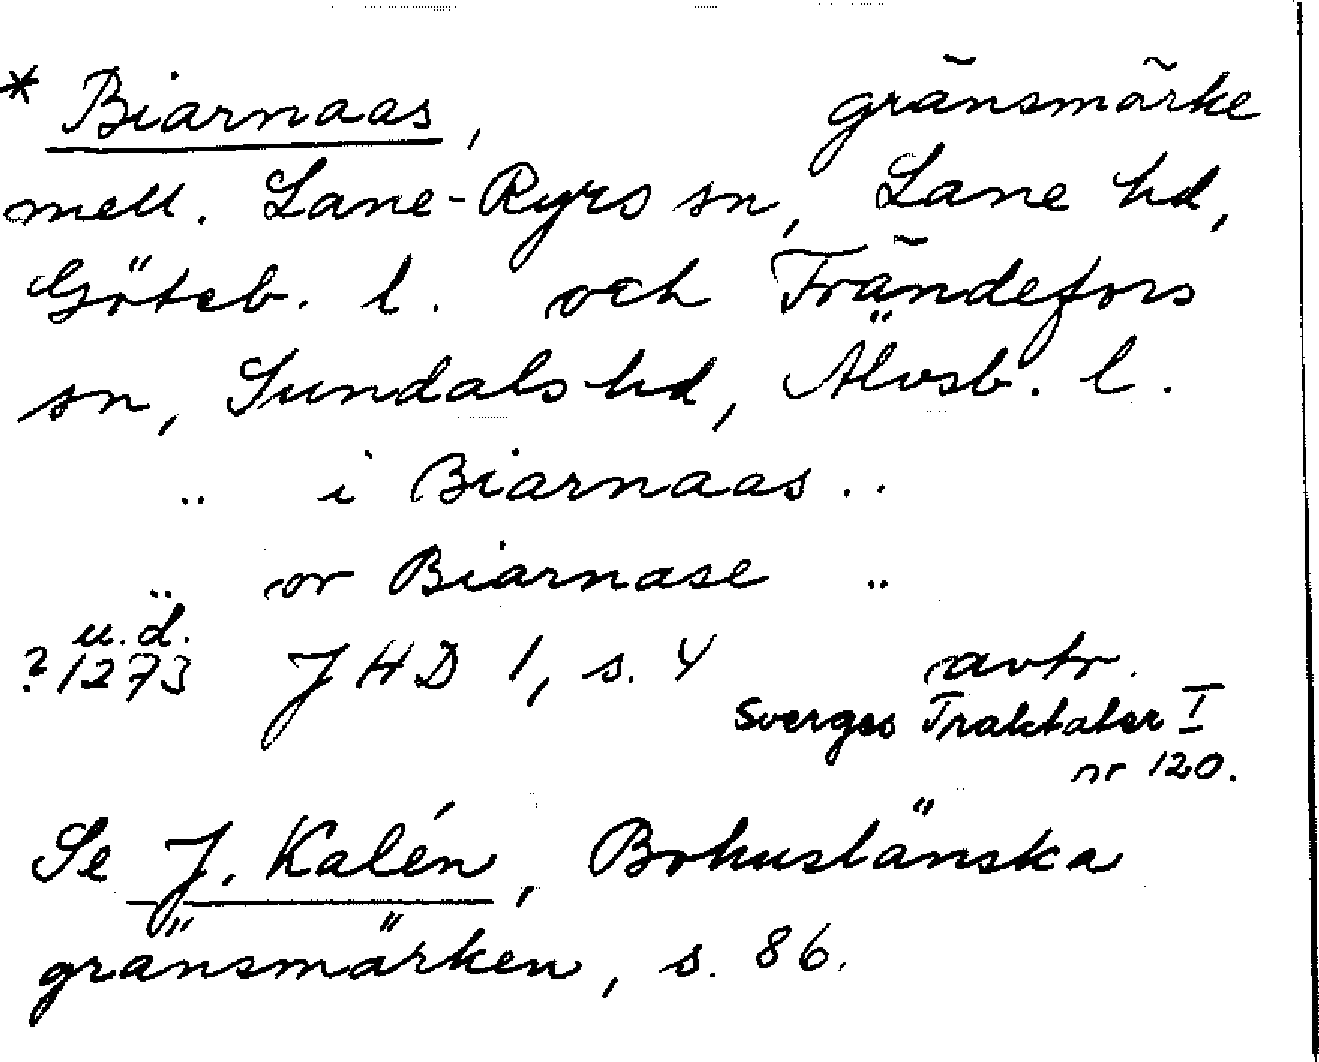 * Biarnaas, gränsmärke
mell. Lane-Ryrs sn, Lane hd,
Göteb. l. och Frändefors
sn, Sundals hd, Älvsb. l.
.. i Biarnaas ..
.. or Biarnase ..
u.d.
? 1273 JHD 1, s. 4 avtr.
Sverges Traktater I
nr 120.
Se J. Kalén, Bohuslänska
gränsmärken, s. 86.